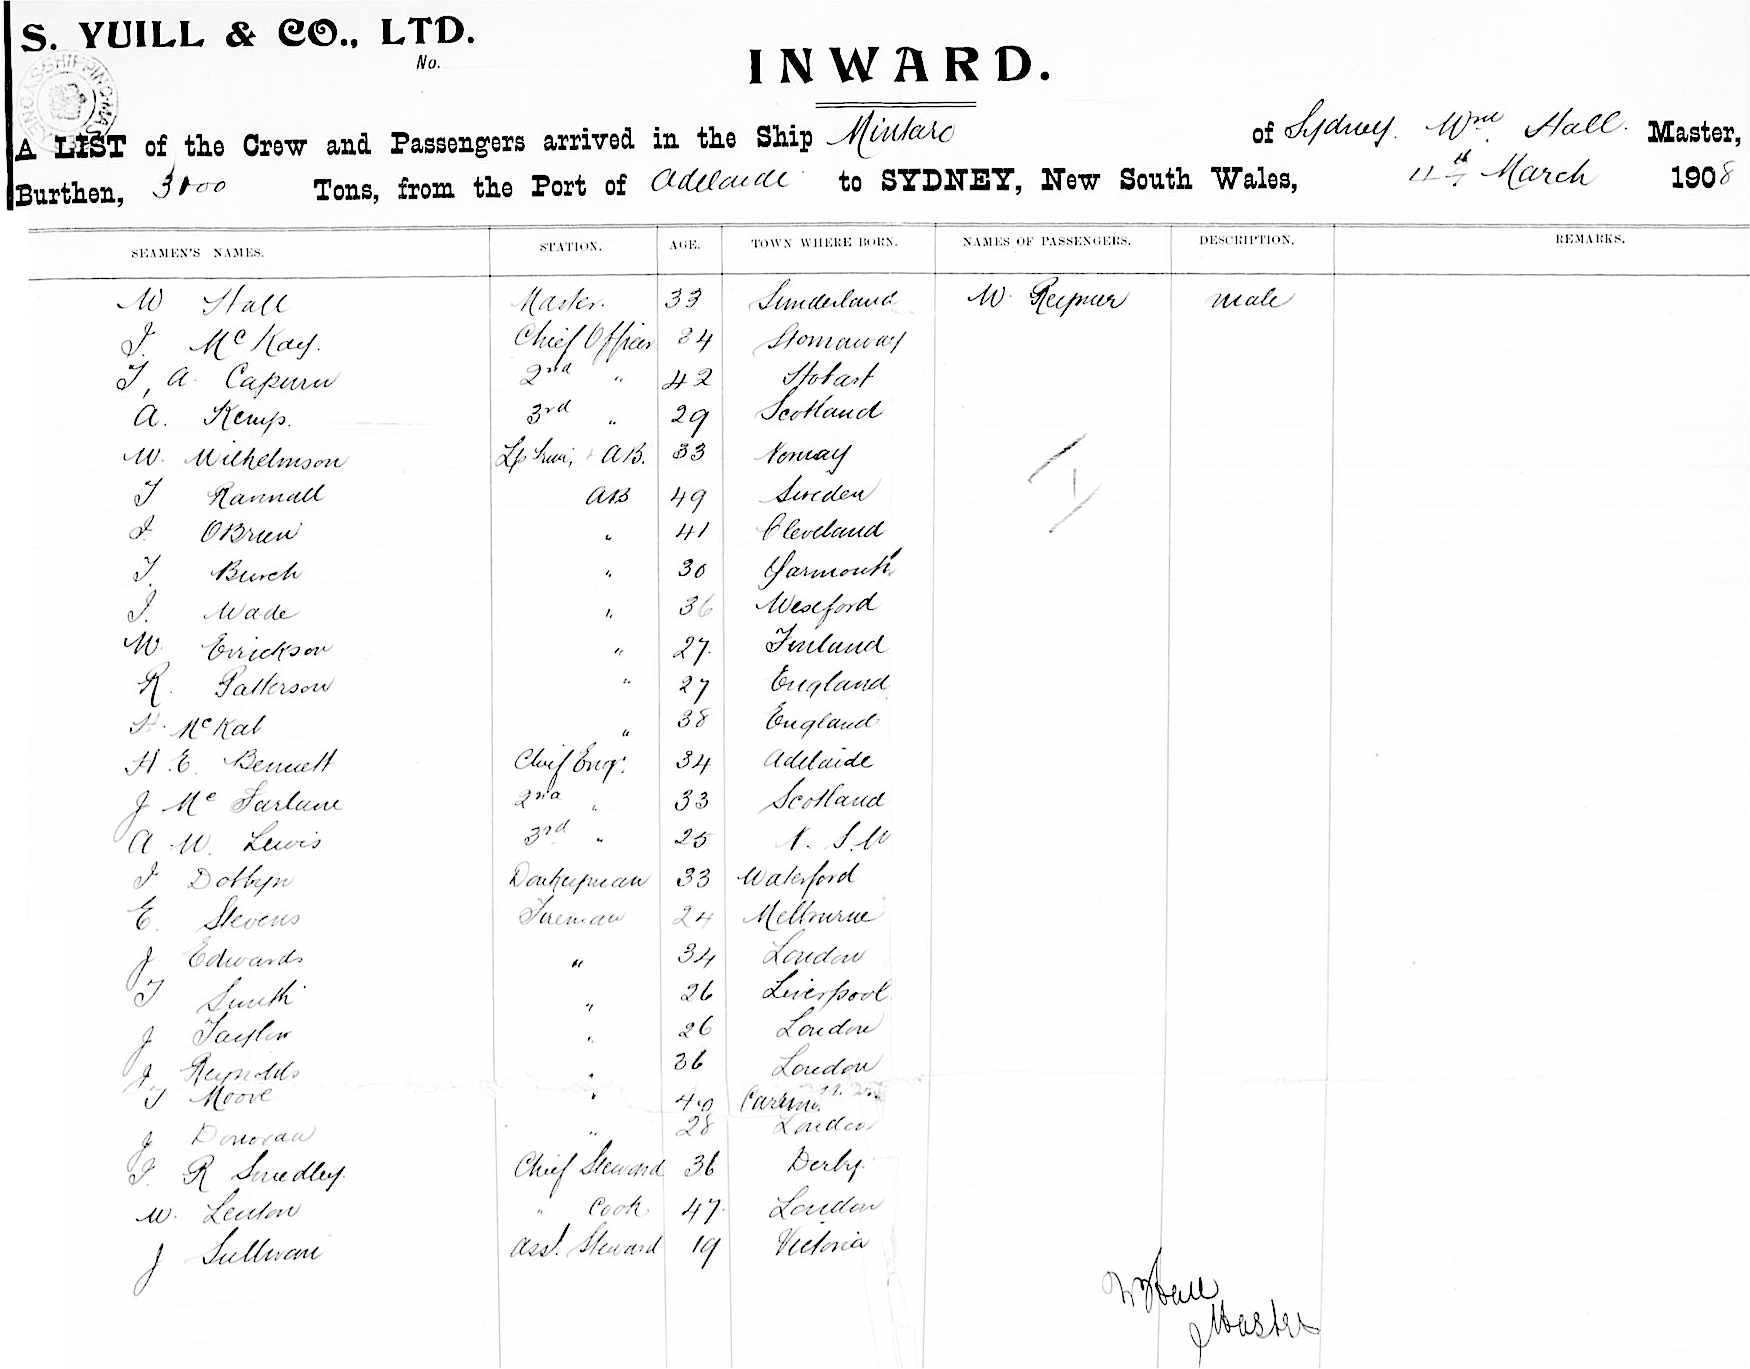 S. YUILL & CO., LTD.
No.
INWARD.
A LIST of the Crew and Passengers arrived in the Ship Mintaro of Sydney. Wm. Hall. Master,
Burthen, 3100 Tons, from the Port of Adelaide to SYDNEY, New South Wales, 11th March 1908
SEAMEN'S NAMES. STATION. AGE. TOWN WHERE BORN. NAMES OF PASSENGERS. DESCRIPTION. REMARKS.
W Hall Master. 33 Sunderland W. male
J. McKay. Chief Officer 34 Stornaway
T, A. Capurn 2nd " 42 Hobart
A. Kemp. 3rd " 29 Scotland
W. Wilhelmson A.B. 33 Norway
T Rannall AB 49 Sweden
J. OBrien " 41 Cleveland
T. Burch " 30 Yarmouth
J. Wade " 36 Wexford
W. Errickson " 27. Finland
R. Patterson " 27 England
H. McKab " 38 England
H. E. Bennett Chief Engr. 34 Adelaide
J Mc Farlane 2nd " 33 Scotland
A. W. Lewis 3rd " 25 N. S. W
J Dobbyn Donkeyman 33 Waterford
E. Stevens Fireman 24 Melbourne
J Edwards " 34 London
T Smith " 26 Liverpool
J Taylor " 26 London
J Reynolds " 36 London
T Moore " 40
J Donovan " 28 London
J. R Smedley. Chief Steward 36 Derby.
W. Lenton " Cook 47. London
J Sullivan Asst. Steward 19 Victoria
W Hall
Master